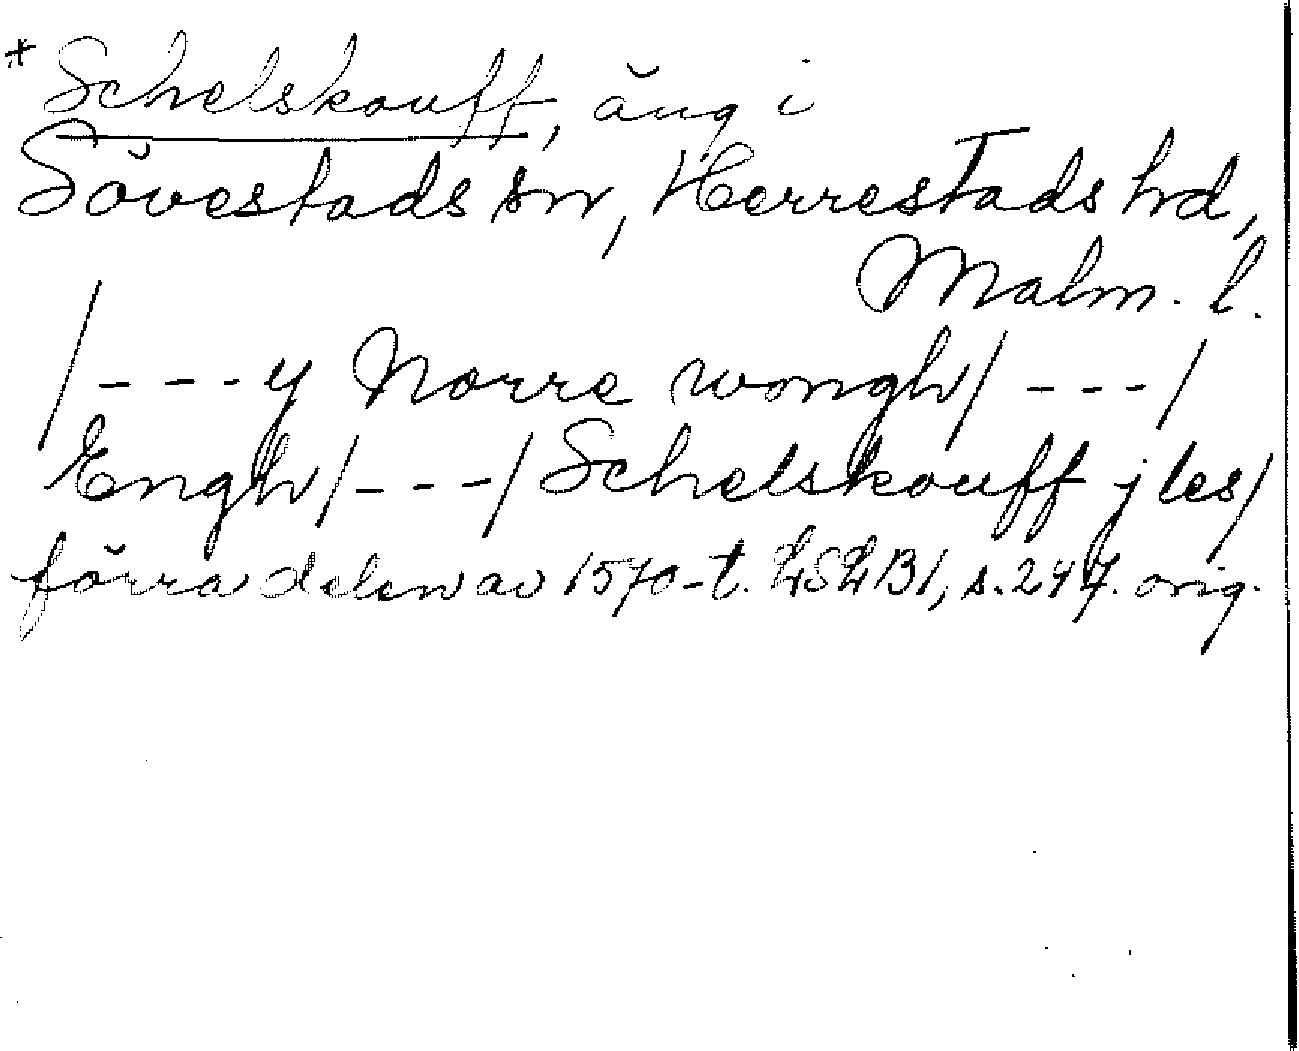 * Schelskouff, äng i
Sövestads sn, Herrestads hd,
Malm. l.
/---y Norre wongh/---/
Engh/---/Schelskouff j les/
förra delen av 1570-t. LSLB1, s. 247. orig.